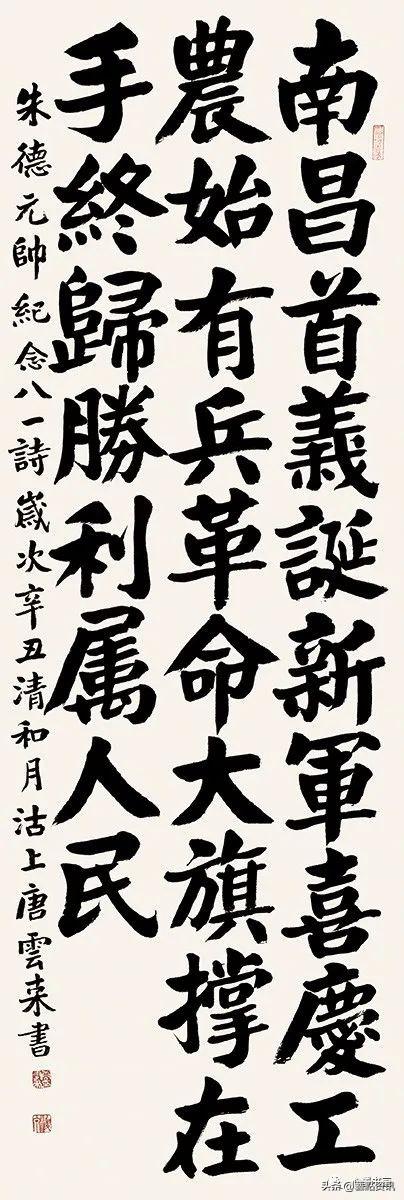 南昌首義誕新軍喜慶工
農始有兵革命大旗撑在
手終歸勝利属人民
朱德元帥紀念八一詩歲次辛丑清和月沽上唐雲来書